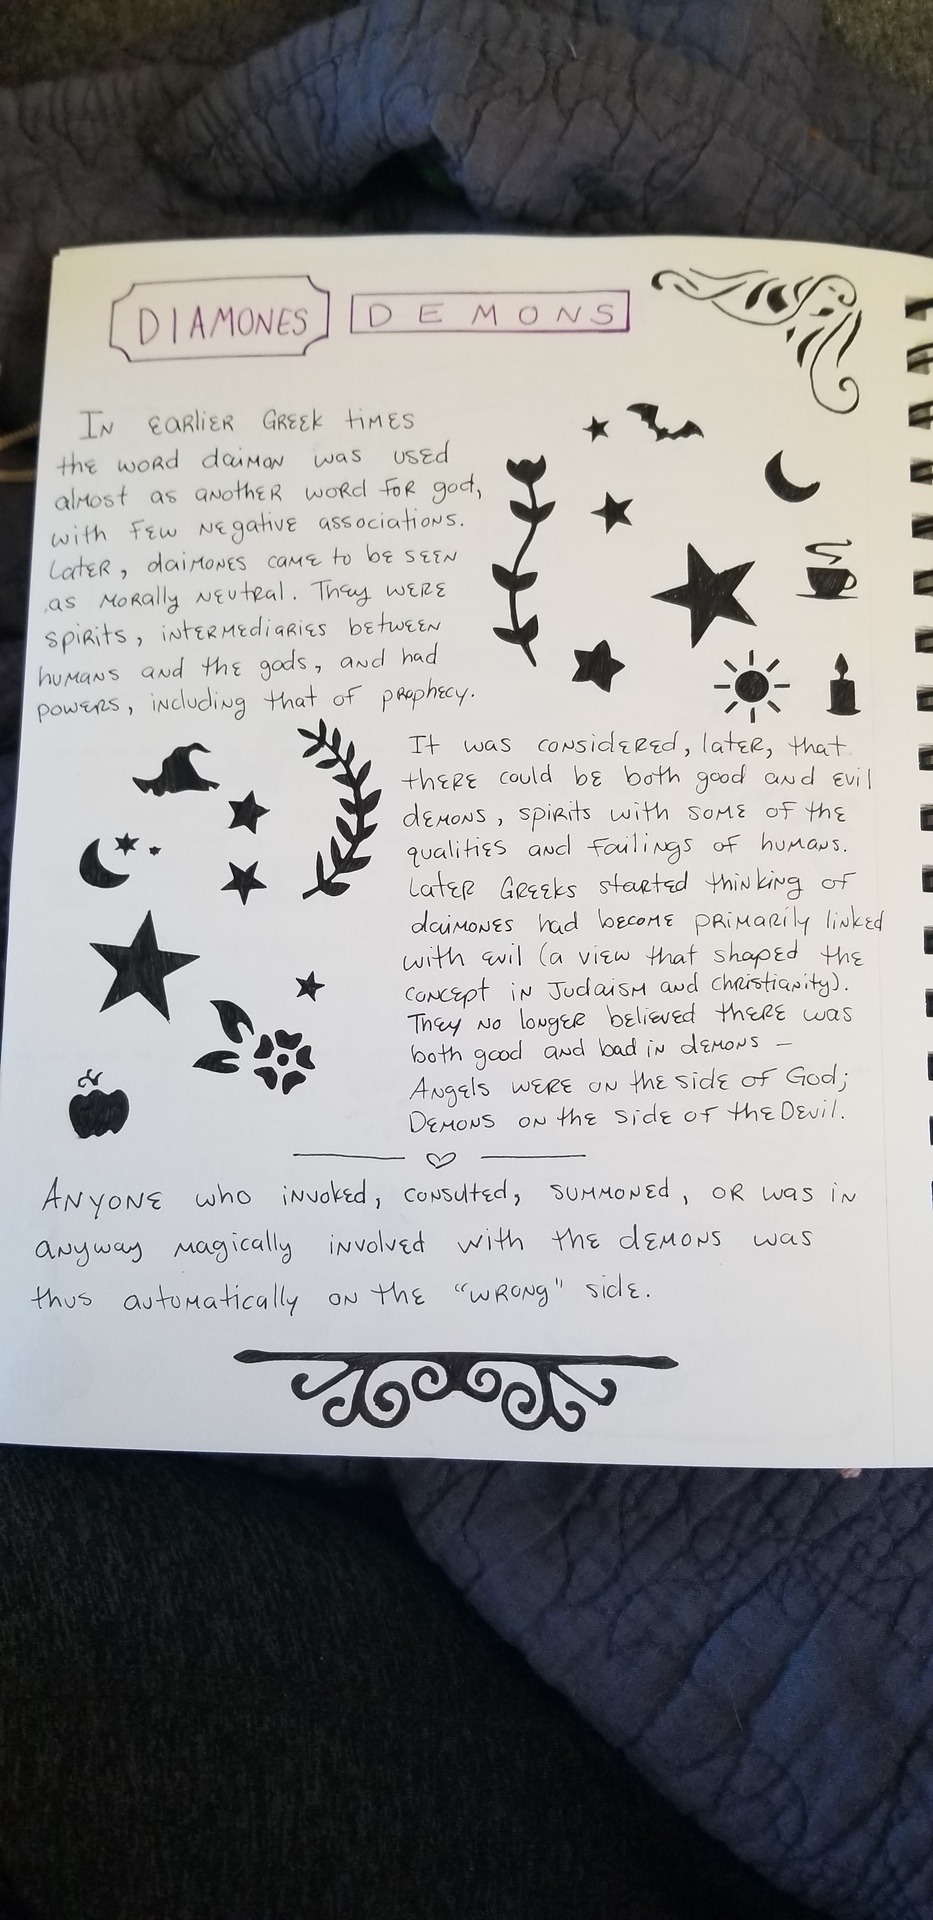 DIAMONES DEMONS
In earlier Greek times
the word daimon was used
almost as another word for god,
with few negative associations.
Later, daimones came to be seen
as morally neutral. They were
spirits, intermediaries between
humans and the gods, and had
powers, including that of prophecy.
It was considered, later, that
there could be both good and evil
demons, spirits with some of the
qualities and failings of humans.
Later Greeks started thinking of
daimones had become primarily linked
with evil (a view that shaped the
concept in Judaism and Christianity).
They no longer believed there was
both good and bad in demons –
Angels were on the side of God;
Demons on the side of the Devil.
Anyone who invoked, consuted, summoned, or was in
anyway magically involved with the demons was
thus automatically on the "wrong" side.